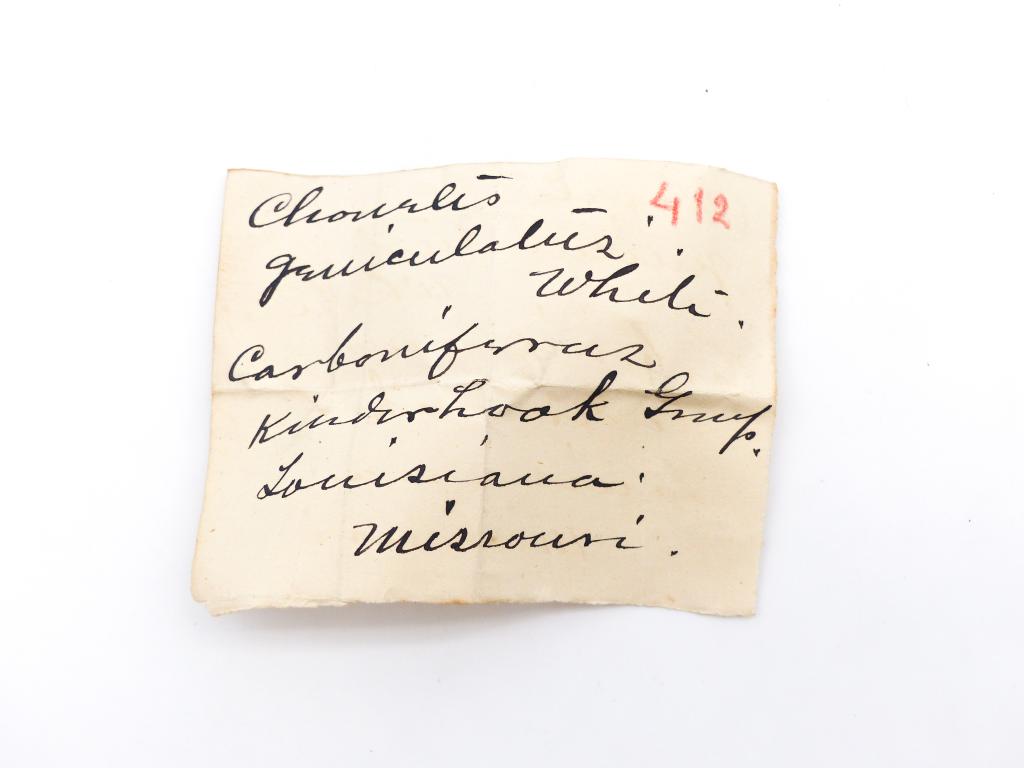 Chonetes 412
geniculatus.
White.
Carboniferous
Kinderhook Group.
Louisiana.
Missouri.